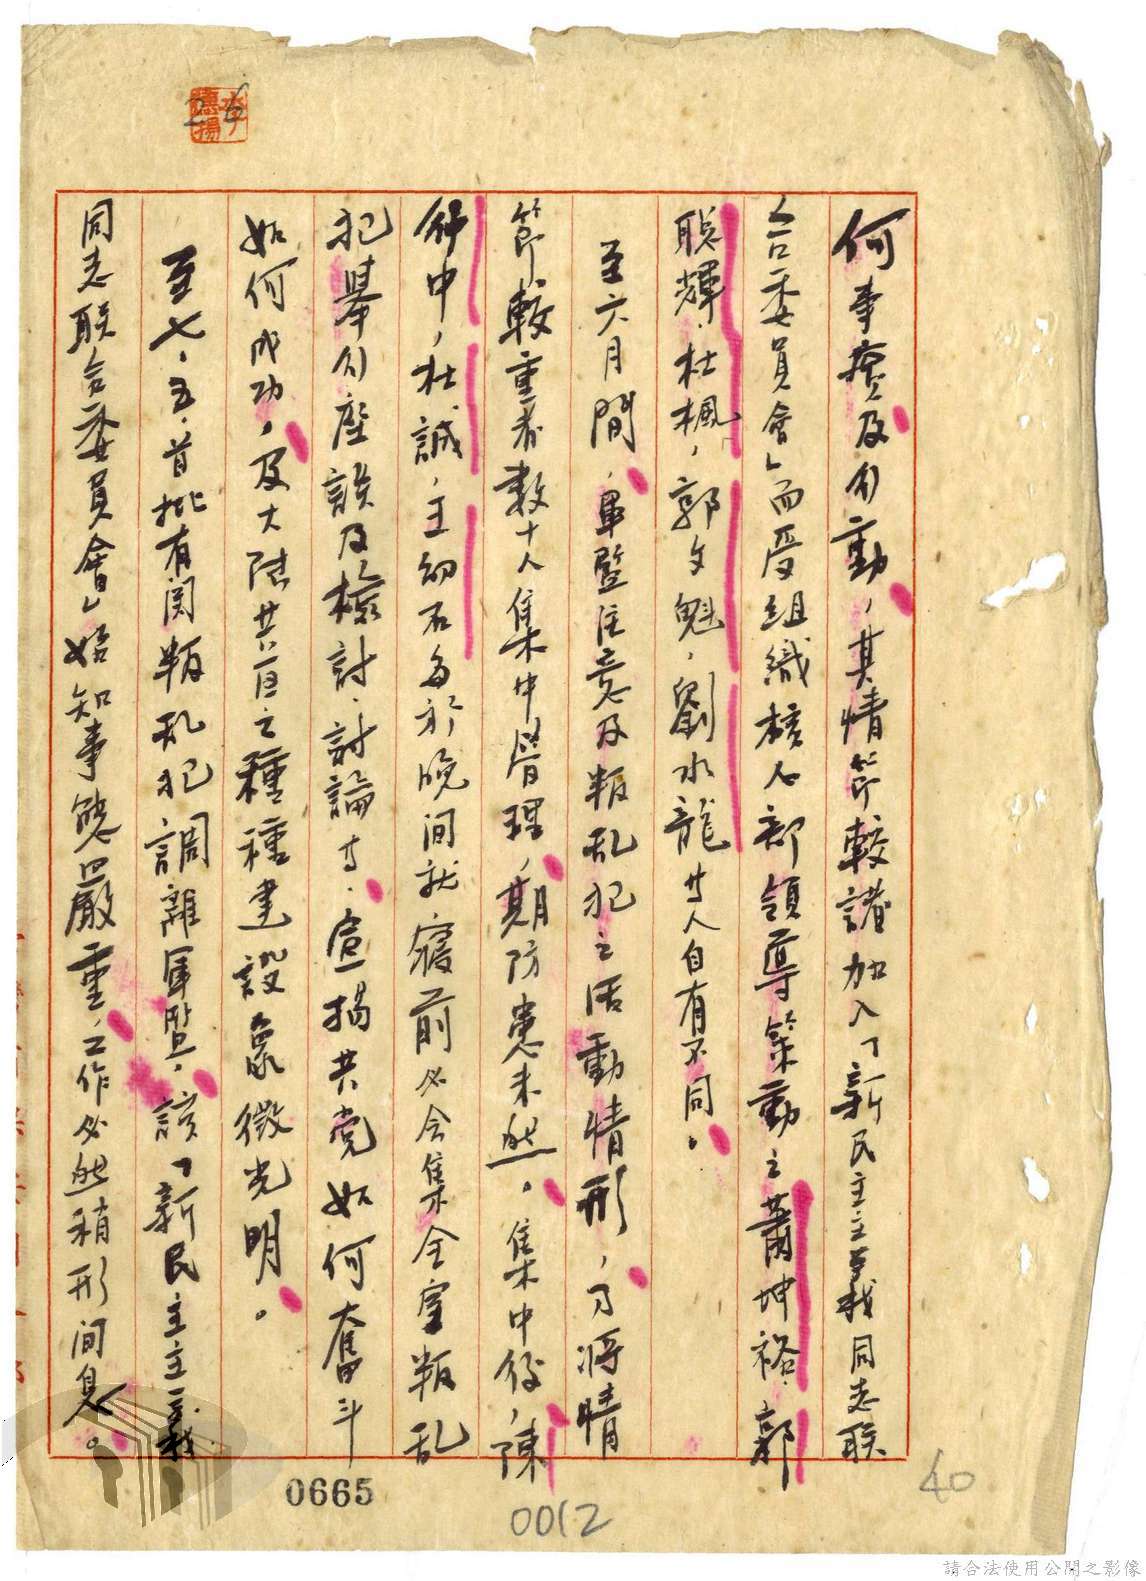 26
何事療及行動，其情節較諸加入「新民主主義同志联
合委員會」而受組織核心部領導策動之蕭坤裕．郭
聪輝．杜楓．郭文魁．劉水龍廿人自有不同。
至六月間，軍監注意及叛乱犯之活動情形，乃將情
節較重者数十人集中管理，期防患未然。集中後，陳
舒中，杜誠，王幼石每於晚间就寢前必会集全室叛乱
犯舉行座談及檢討．討論廿．宣揚共党如何奮斗
如何成功，及大陆共匪之種種建設象徵光明。
至七．五．首批有関叛乱犯調離軍監，該「新民主主義
同志联合委員會」始知事態嚴重，工作必然稍形间息。
0665
0012
40
請合法使用公開之影像